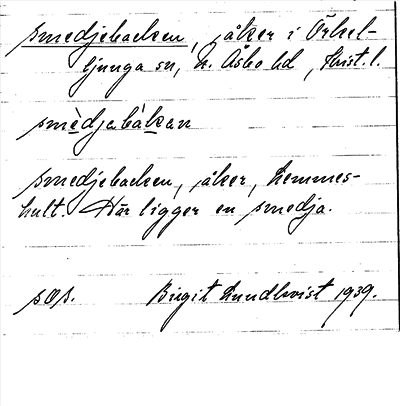 smedjebacken, åker i Örkel-
ljunga sn, N. Åsbo hd, Krist. l.
smèdjebàkan
smedjebacken, åker, Hemmes-
hult. Här ligger en smedja.
sOs. Birgit Lundkvist 1939.